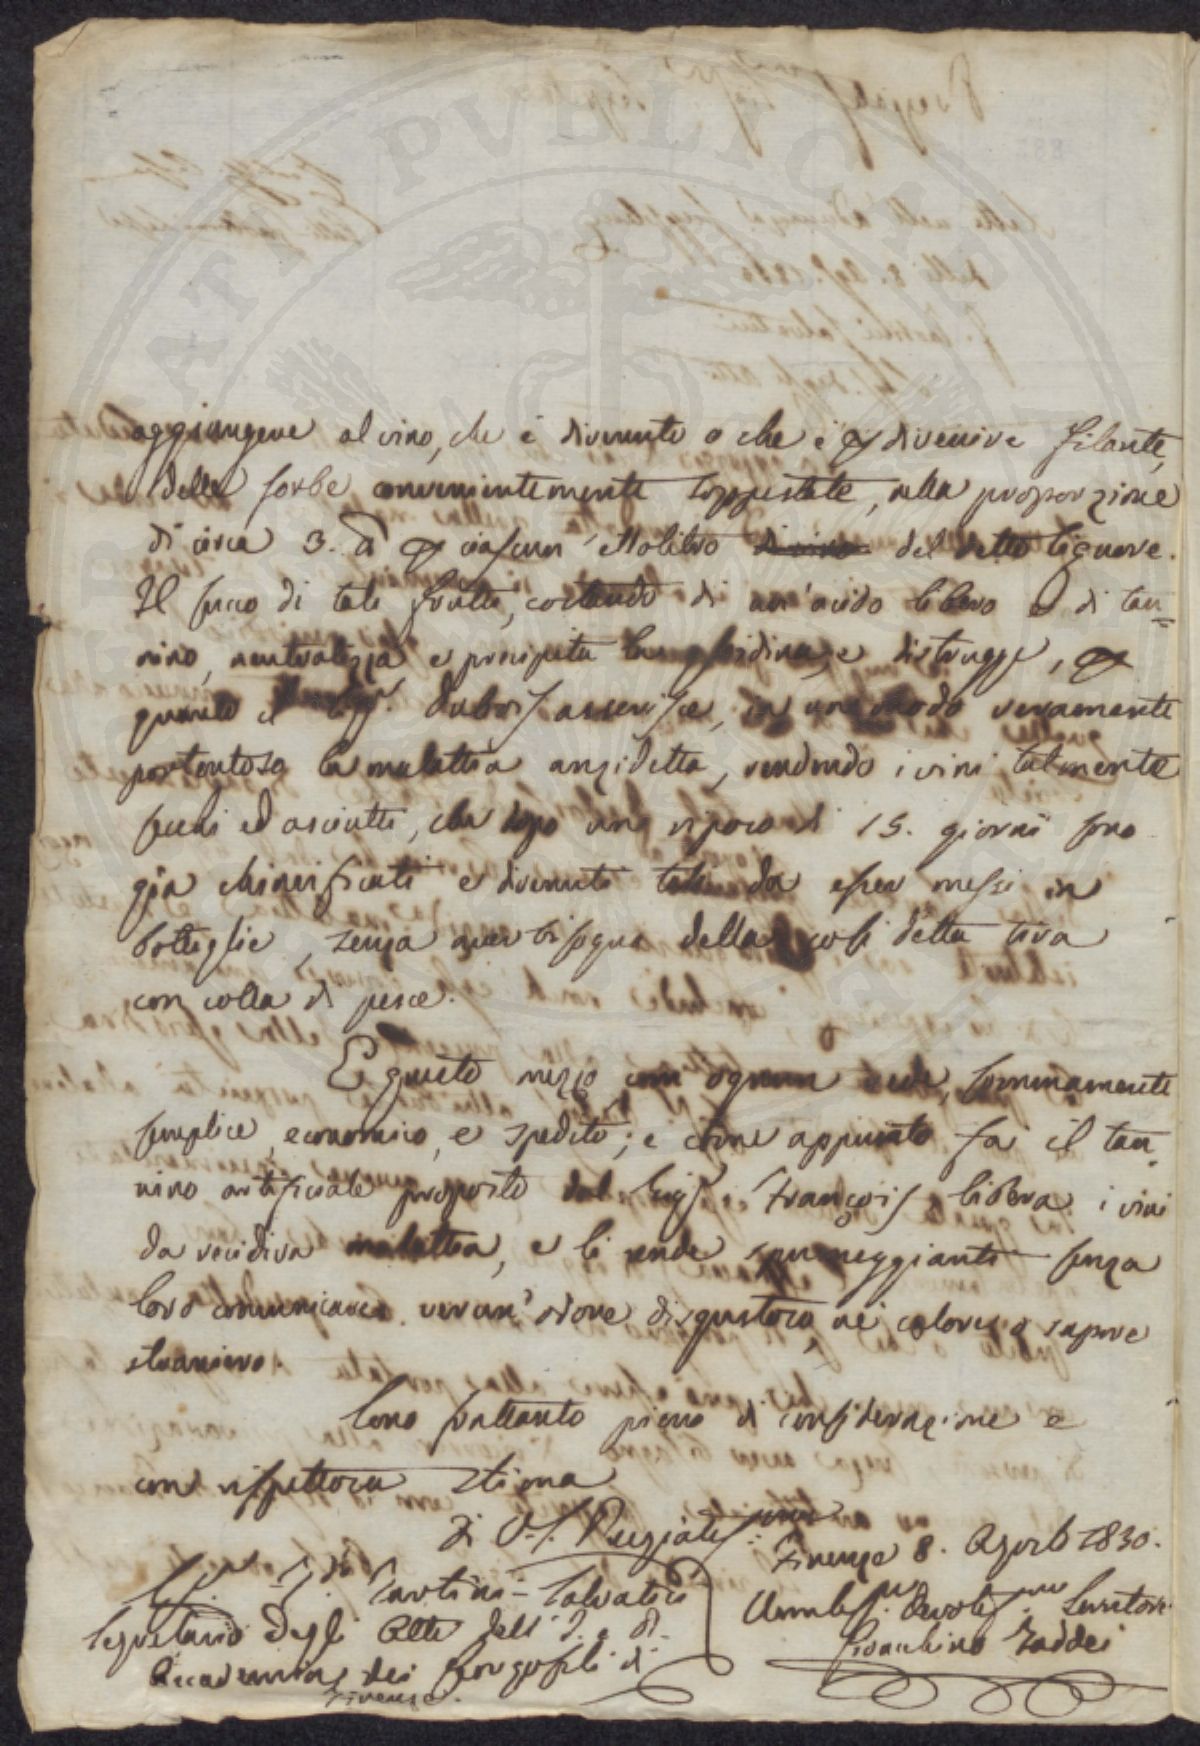 aggiungere al vino, che è divenuto o che è p divenire filante,
delle sorbe convenientemente soppestate, nella proporzione
di circa 3. ℔ p ciascun' ettolitro di vino del detto liquore.
Il succo di tali frutti, costando di un'acido libero e di tan=
nino, neutralizza e precipita la gliadina, e distrugge, p
quanto il Sigr. Dubois asserisce, in un modo veramente
portentoso la malattia anzidetta, rendendo i vini talmente
secchi ed asciutti, che dopo uno riposo di 15. giorni sono
già chiarificati e divenuti tali da esser messi in
bottiglie, senza aver bisogno della così detta tira
con colla di pesce.
E questo mezzo, com' ognun vede, sommamente
semplice, economico, e spedito; e come appunto fa il tan=
nino artificiale proposto dal Sigr François libera i vini
da recidiva malattia, e li rende spumeggianti senza
loro comunicare verun' odore disgustoso, nè colore o sapore
straniero.
Sono frattanto pieno di considerazione e
con rispettosa stima
di V. S. Pregiatissima
Firenze 8. Agosto 1830.
Tartini-Salvatici
Segretario degli Atti dell' I. e R.
Accademia dei Georgofili di
Firenze.
Umilis.mo Devotis.mo Servitore
Gioachino Taddei